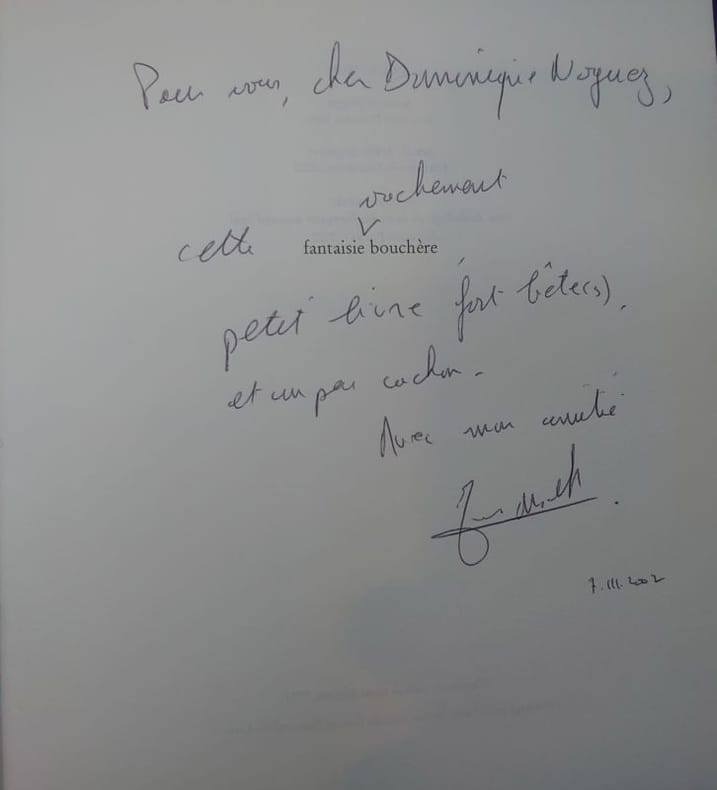 Pour vous, cher Dominique Noguez,
vachement
cette fantaisie bouchère,
petit livre fort bête(s),
et un peu cochon.
Avec mon amitié
7.III.2002